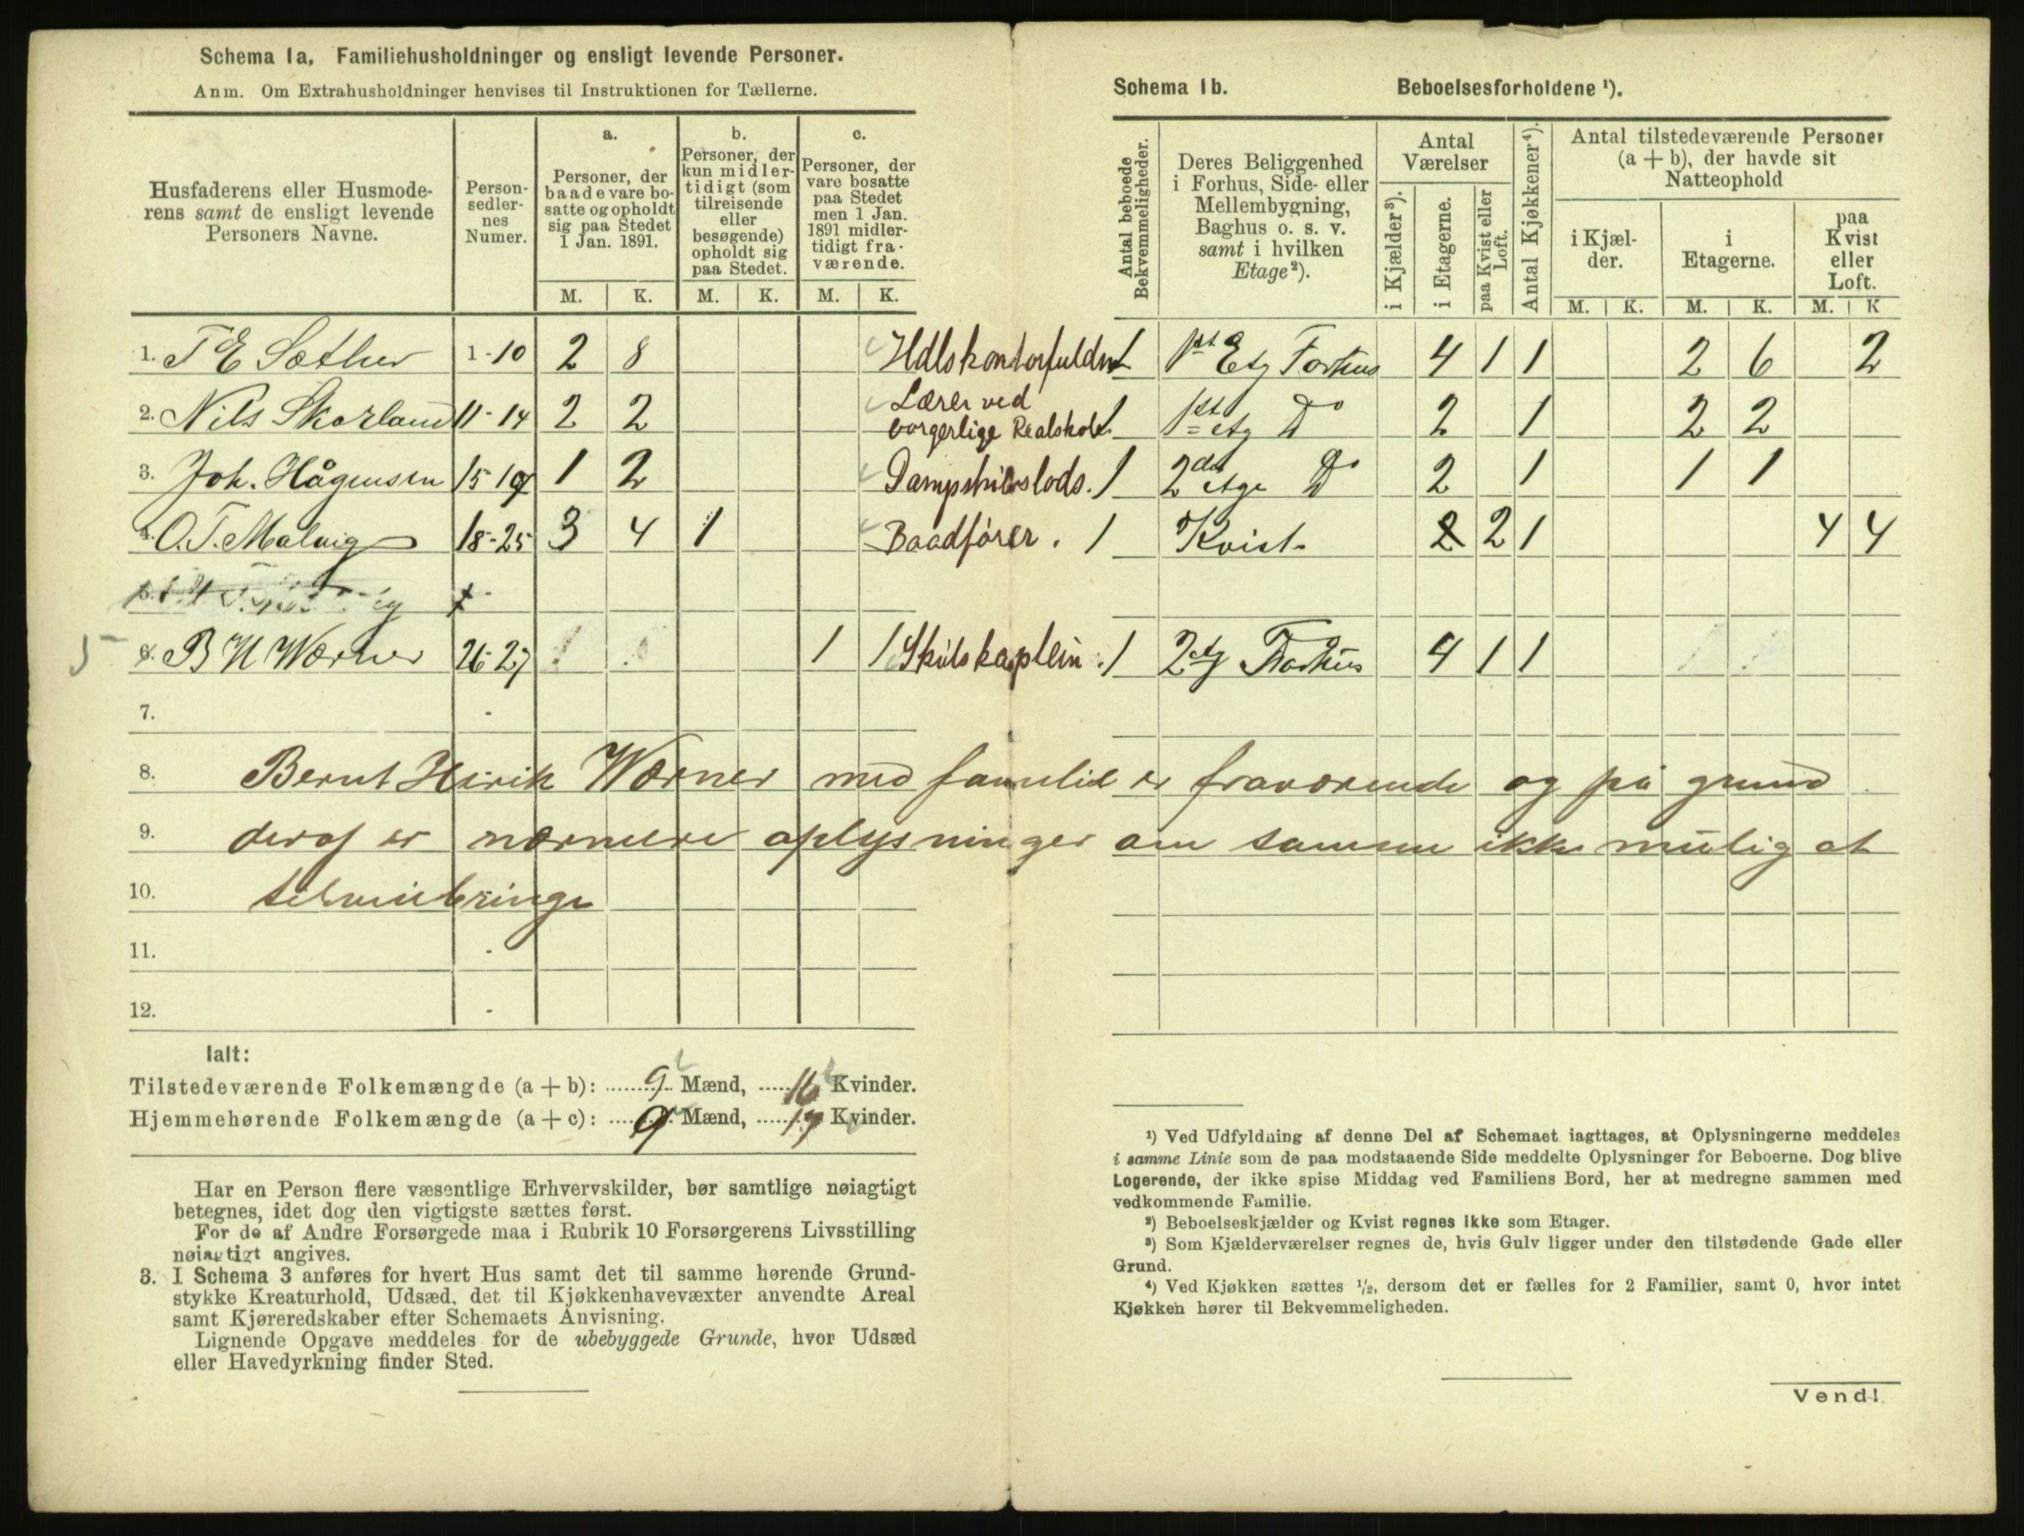 Schema 1a, Familiehusholdninger og ensligt levende Personer.
Anm. Om Extrahusholdninger henvises til Instruktionen for Tællerne.
Husfaderens eller Husmode-
rens samt de ensligt levende
Personers Navne.
Person-
sedler-
nes
Numer.
a.
Personer, der
baade vare bo-
satte og opholdt
sig paa Stedet
1 Jan. 1891.
b.
Personer, der
kun midler-
tidigt (som
tilreisende
eller
besøgende)
opholdt sig
paa Stedet.
c.
Personer, der
vare bosatte
paa Stedet
men 1 Jan.
1891 midler-
tidigt fra-
værende.
M. K. M. K. M. K.
1. T E Sæther 1-10 2 8
2. Nils Skorland 11-14 2 2
3. Joh. Hågensen 15-17 1 2
4. O. T. Malvig 18-25 3 4 1
5.
5 6. B H Wærner 26-27 1 1
7. -
8. Bernt Henrik Wærner med familie er fraværende og på grund
9. deraf er nærmere oplysninger om samme ikke mulig at
10. tilveiebringe
11. -
12. -
Ialt:
Tilstedeværende Folkemængde (a + b): 9 Mænd, 16 Kvinder.
Hjemmehørende Folkemængde (a + c): 9 Mænd, 17 Kvinder.
Har en Person flere væsentlige Erhvervskilder, bør samtlige nøiagtigt
betegnes, idet dog den vigtigste sættes først.
For de af Andre Forsørgede maa i Rubrik 10 Forsørgerens Livsstilling
nøiagtigt angives.
3. I Schema 3 anføres for hvert Hus samt det til samme hørende Grund-
stykke Kreaturhold, Udsæd, det til Kjøkkenhavevæxter anvendte Areal
samt Kjøreredskaber efter Schemaets Anvisning.
Lignende Opgave meddeles for de ubebyggede Grunde, hvor Udsæd
eller Havedyrkning finder Sted.
Schema 1b. Beboelsesforholdene ¹).
Antal beboede
Bekvemmeligheder.
Deres Beliggenhed
i Forhus, Side- eller
Mellembygning,
Baghus o. s. v.
samt i hvilken
Etage²).
Antal
Værelser
i Kjælder³).
i Etagerne.
paa Kvist eller
Loft.
Antal Kjøkkener⁴).
Antal tilstedeværende Personer
(a + b), der havde sit
Natteophold
i Kjæl-
der.
i
Etagerne.
paa
Kvist
eller
Loft.
M. K. M. K. M. K
Hdlskontorfuldm 1 1st Etg Forhus 4 1 1 2 6 2
Lærer ved
borgerlige Realskole 1 1st etg Do 2 1 2 2
Dampskibslods. 1 2de etge Do 2 1 1 1
Baadfører. 1 Kvist 2 2 1 4 4
Skibskaptein. 1 2 etg Forhus 4 1 1
¹) Ved Udfyldning af denne Del af Schemaet iagttages, at Oplysningerne meddeles
i samme Linie som de paa modstaaende Side meddelte Oplysninger for Beboerne. Dog blive
Logerende, der ikke spise Middag ved Familiens Bord, her at medregne sammen med
vedkommende Familie.
²) Beboelseskjælder og Kvist regnes ikke som Etager.
³) Som Kjælderværelser regnes de, hvis Gulv ligger under den tilstødende Gade eller
Grund.
⁴) Ved Kjøkken sættes ½, dersom det er fælles for 2 Familier, samt 0, hvor intet
Kjøkken hører til Bekvemmeligheden.
Vend!